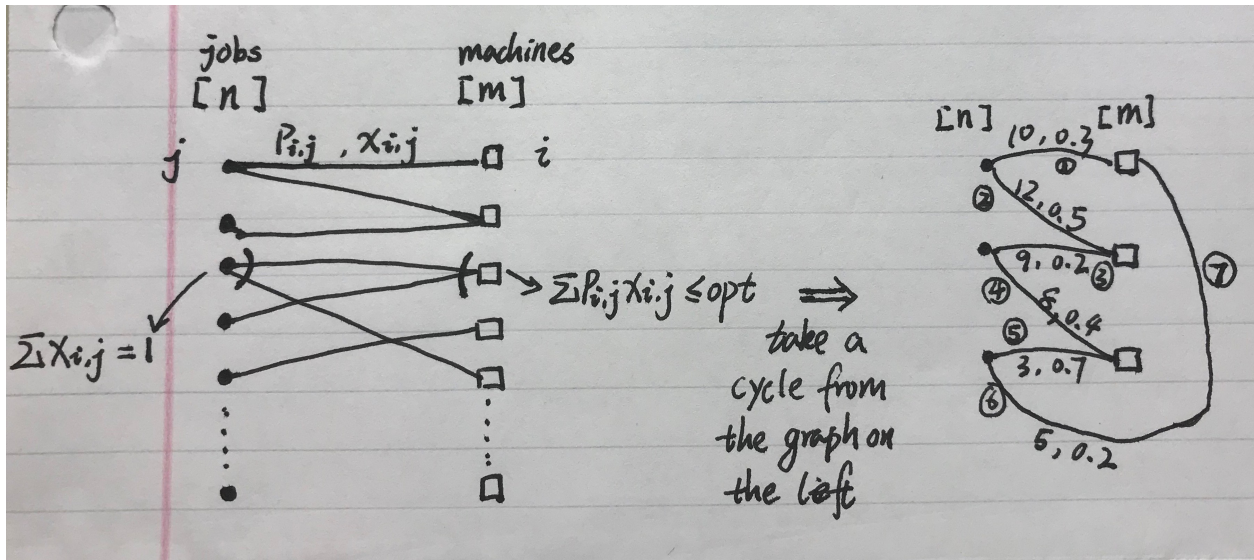 jobs
[n]
machines
[m]
j
P i,j , x i,j
i
∑ x i,j = 1
∑ P i,j x i,j ≤ opt
⇒
take a
cycle from
the graph on
the left
[n]
[m]
10, 0.3
①
②
12, 0.5
9, 0.2
③
④
8, 0.4
⑤
3, 0.7
⑥
5, 0.2
⑦